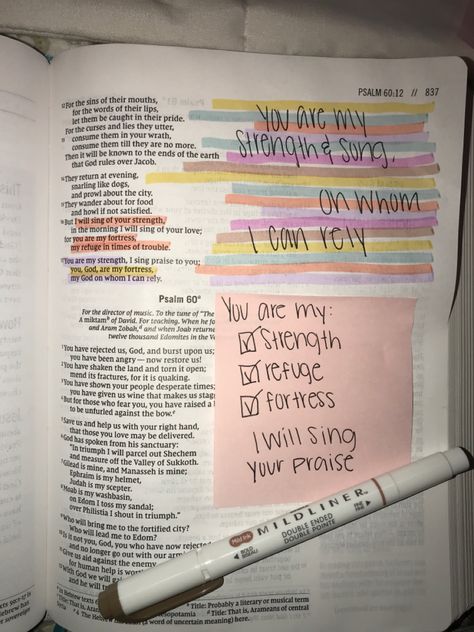 PSALM 60:12 // 837
12 For the sins of their mouths,
for the words of their lips,
let them be caught in their pride.
For the curses and lies they utter,
13 consume them in your wrath,
consume them till they are no more.
Then it will be known to the ends of the earth
that God rules over Jacob.
14 They return at evening,
snarling like dogs,
and prowl about the city.
15 They wander about for food
and howl if not satisfied.
16 But I will sing of your strength,
in the morning I will sing of your love;
for you are my fortress,
my refuge in times of trouble.
17 You are my strength, I sing praise to you;
you, God, are my fortress,
my God on whom I can rely.
You are my
strength & song,
on whom
I can rely
Psalm 60
For the director of music. To the tune of "The
A miktam of David. For teaching. When he fo
and Aram Zobah, and when Joab returne
twelve thousand Edomites in the V
1 You have rejected us, God, and burst upon us;
you have been angry — now restore us!
2 You have shaken the land and torn it open;
mend its fractures, for it is quaking.
3 You have shown your people desperate times;
you have given us wine that makes us stag
4 But for those who fear you, you have raised a
to be unfurled against the bow.
5 Save us and help us with your right hand,
that those you love may be delivered.
6 God has spoken from his sanctuary:
"In triumph I will parcel out Shechem
and measure off the Valley of Sukkoth.
7 Gilead is mine, and Manasseh is mine;
Ephraim is my helmet,
Judah is my scepter.
8 Moab is my washbasin,
on Edom I toss my sandal;
over Philistia I shout in triumph."
9 Who will bring me to the fortified city?
Who will lead me to Edom?
10 Is it not you, God, you who have now rejected
and no longer go out with our arm
11 Give us aid against the enemy,
for human help is wor
12 With God we will ga
and he will tr
You are my:
strength
refuge
fortress
I will sing
your praise
Mild Ink MILDLINER
DOUBLE ENDED
DOUBLE POINTE
BOLD
FINE
Title: Probably a literary or musical term
Title: That is, Arameans of central
(a word of uncertain meaning) here.